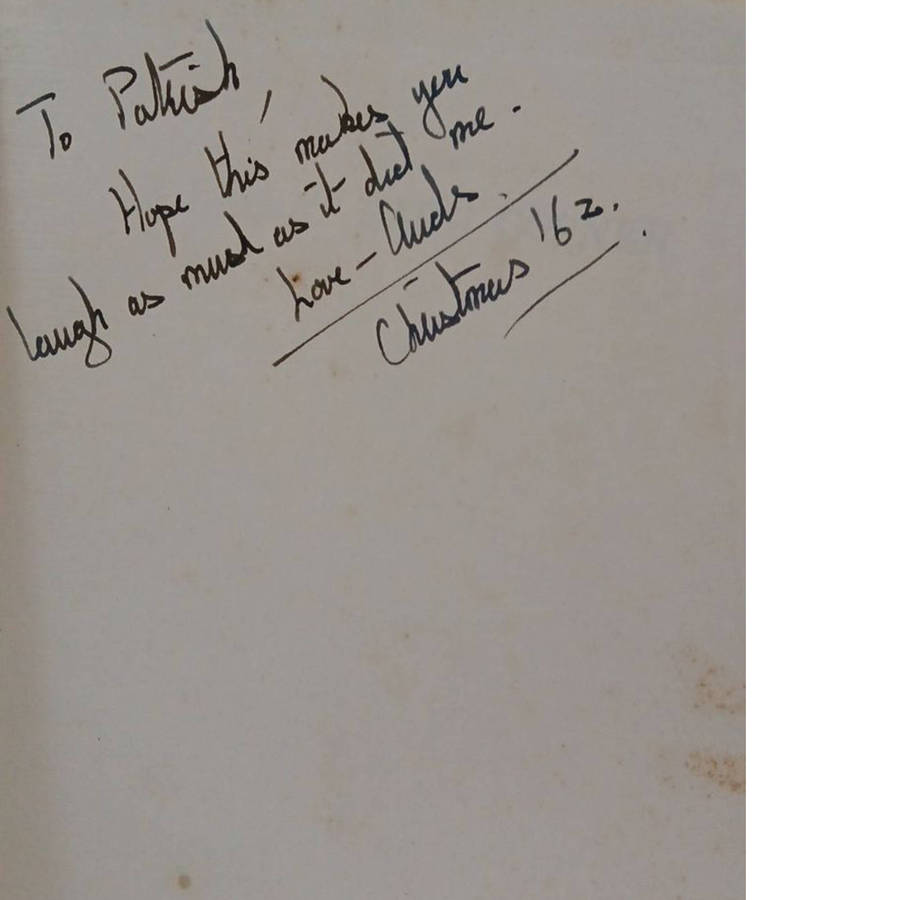 To Patrick,
Hope this makes you
laugh as much as it did me.
Love -
Christmas '62.